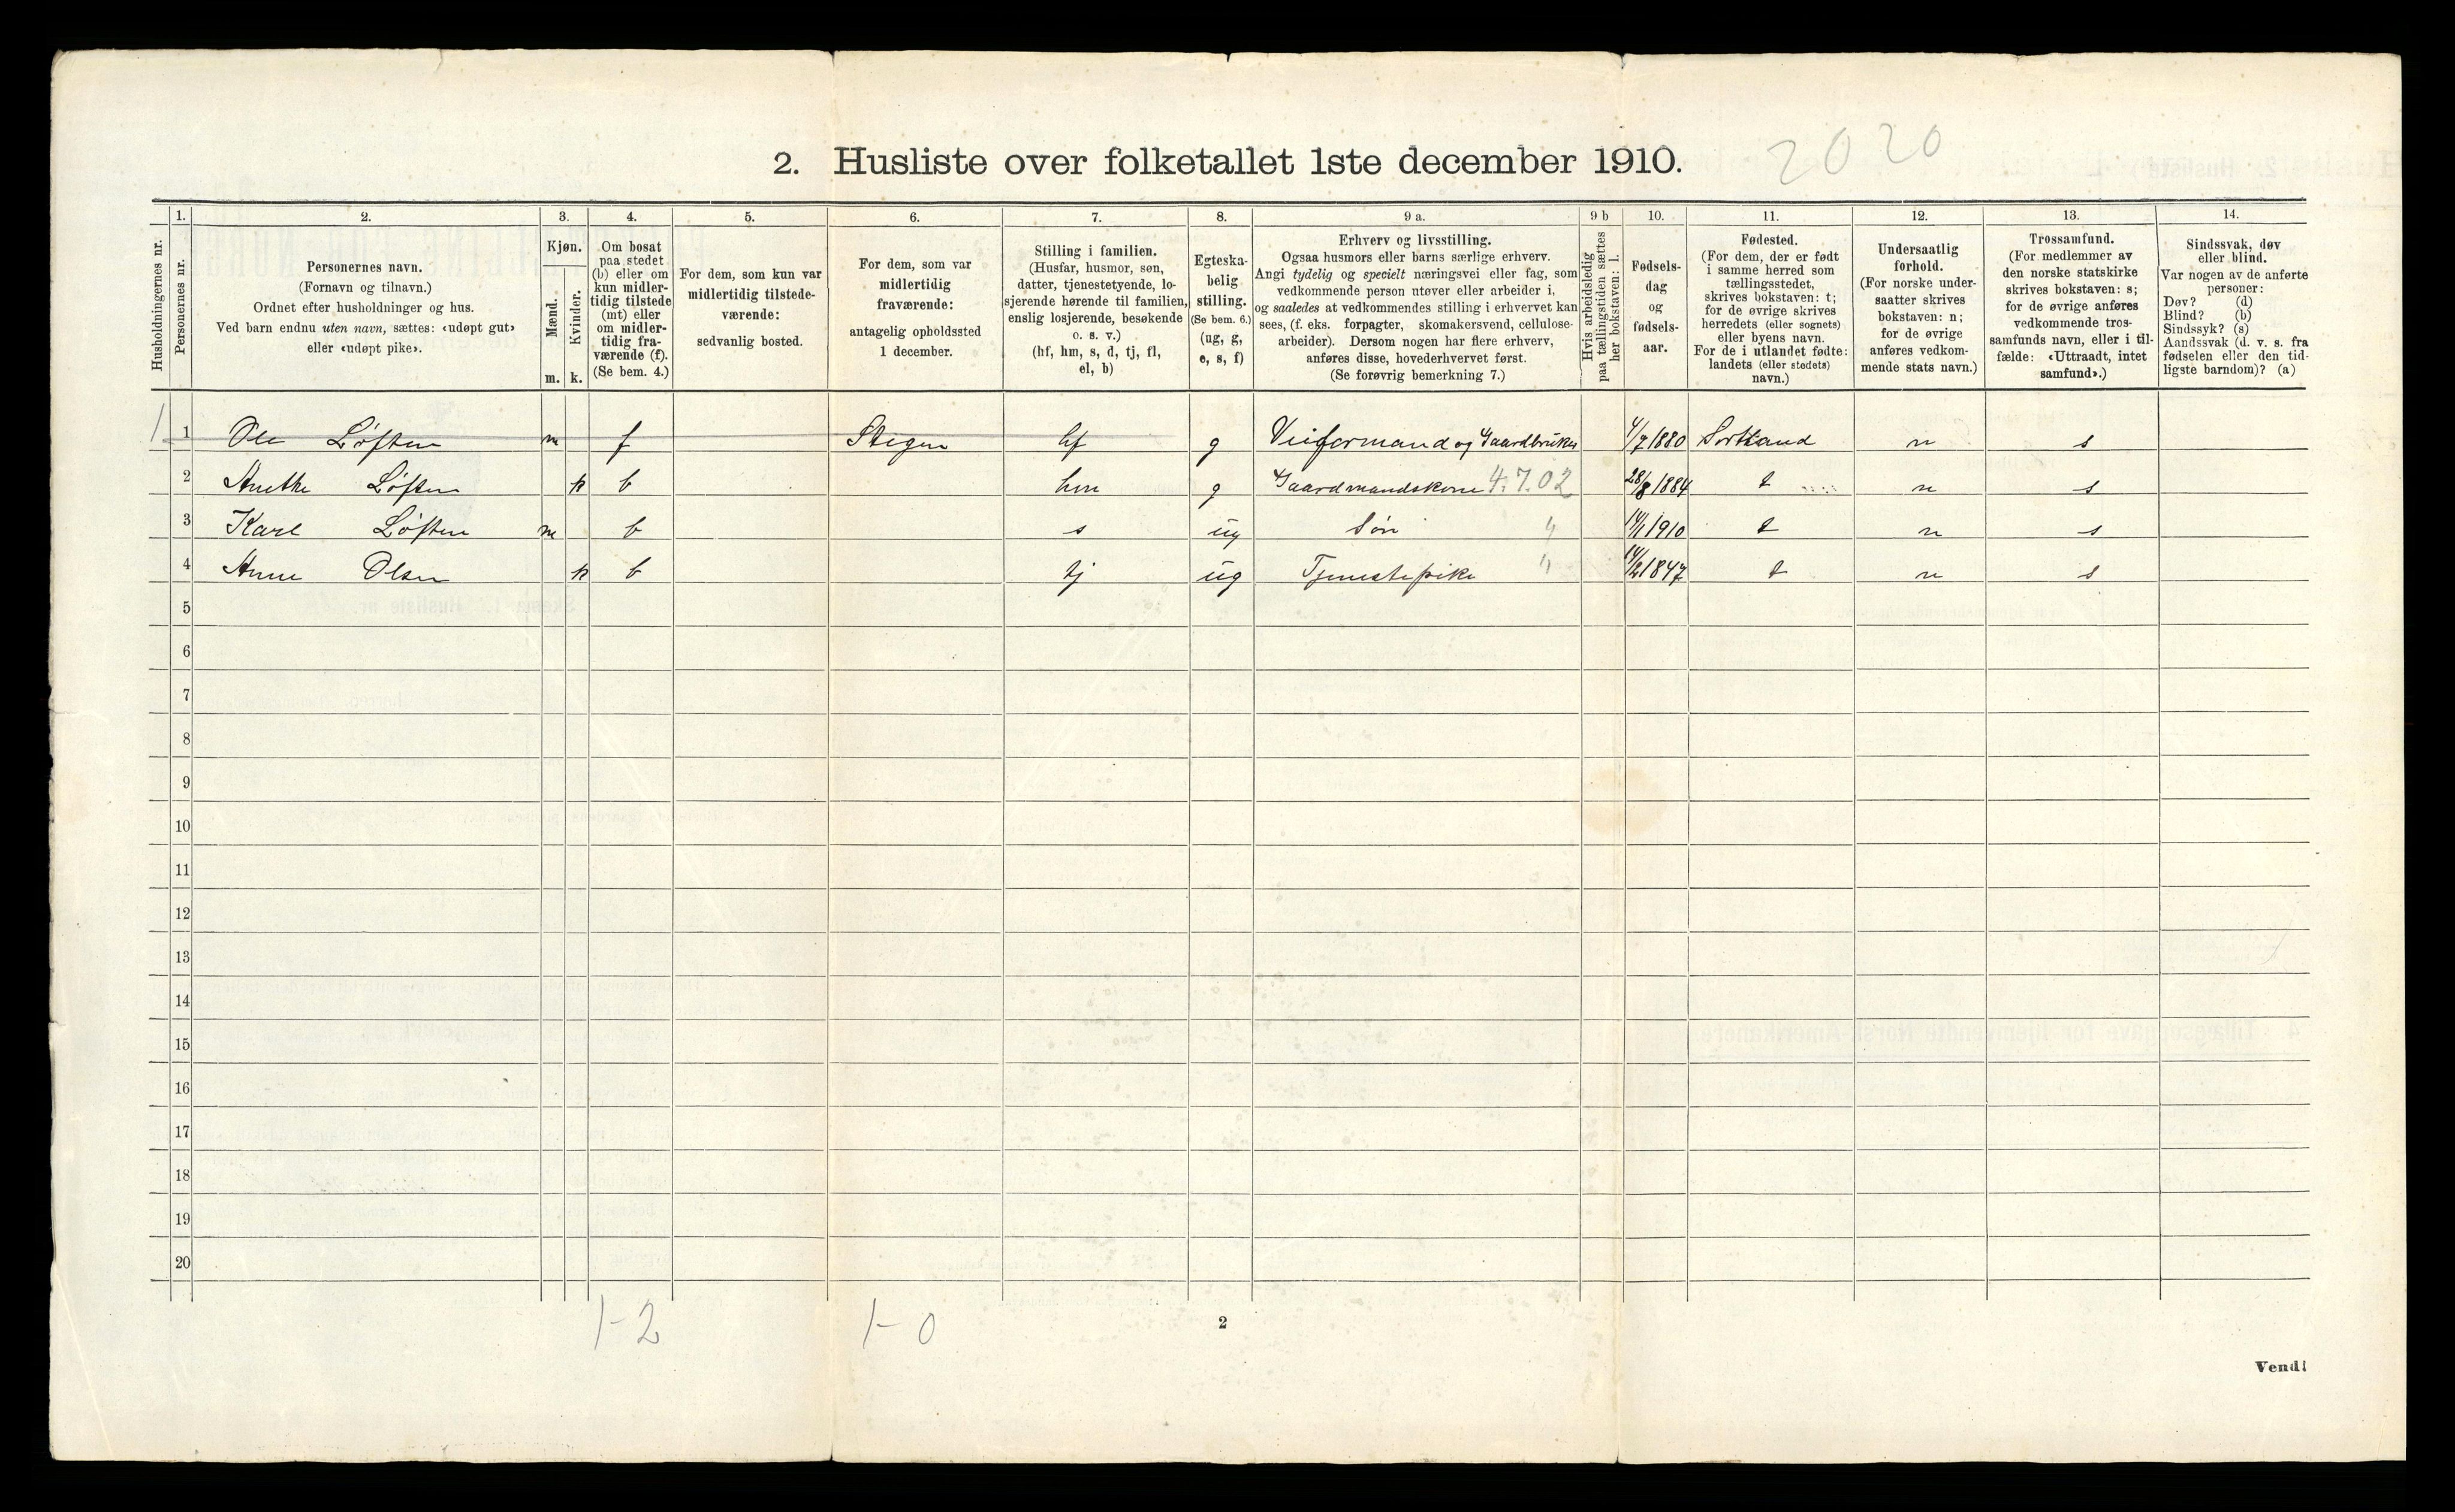 2. Husliste over folketallet 1ste december 1910.
2020
Husholdningernes nr.
1.
Personernes nr.
2.
Personernes navn.
(Fornavn og tilnavn.)
Ordnet efter husholdninger og hus.
Ved barn endnu uten navn, sættes: «udøpt gut»
eller «udøpt pike».
3.
Kjøn.
Mænd.
Kvinder.
m. k.
4.
Om bosat
paa stedet
(b) eller om
kun midler-
tidig tilstede
(mt) eller
om midler-
tidig fra-
værende (f).
(Se bem. 4.)
5.
For dem, som kun var
midlertidig tilstede-
værende:
sedvanlig bosted.
6.
For dem, som var
midlertidig
fraværende:
antagelig opholdssted
1 december.
7.
Stilling i familien.
(Husfar, husmor, søn,
datter, tjenestetyende, lo-
sjerende hørende til familien,
enslig losjerende, besøkende
o. s. v.)
(hf, hm, s, d, tj, fl,
el, b)
8.
Egteska-
belig
stilling.
(Se bem. 6.)
(ug, g,
e, s, f)
9 a.
Erhverv og livsstilling.
Ogsaa husmors eller barns særlige erhverv.
Angi tydelig og specielt næringsvei eller fag, som
vedkommende person utøver eller arbeider i,
og saaledes at vedkommendes stilling i erhvervet kan
sees, (f. eks. forpagter, skomakersvend, cellulose-
arbeider). Dersom nogen har flere erhverv,
anføres disse, hovederhvervet først.
(Se forøvrig bemerkning 7.)
9 b
Hvis arbeidsledig
paa tællingstiden sættes
her bokstaven: l.
10.
Fødsels-
dag
og
fødsels-
aar.
11.
Fødested.
(For dem, der er født
i samme herred som
tællingsstedet,
skrives bokstaven: t;
for de øvrige skrives
herredets (eller sognets)
eller byens navn.
For de i utlandet fødte:
landets (eller stedets)
navn.)
12.
Undersaatlig
forhold.
(For norske under-
saatter skrives
bokstaven: n;
for de øvrige
anføres vedkom-
mende stats navn.)
13.
Trossamfund.
(For medlemmer av
den norske statskirke
skrives bokstaven: s;
for de øvrige anføres
vedkommende tros-
samfunds navn, eller i til-
fælde: «Uttraadt, intet
samfund».)
14.
Sindssvak, døv
eller blind.
Var nogen av de anførte
personer:
Døv? (d)
Blind? (b)
Sindssyk? (s)
Aandssvak (d. v. s. fra
fødselen eller den tid-
ligste barndom)? (a)
1 1 Ole Løften m f Stegen hf g Veiformand og Gaardbruker 4/7 1880 Sortland n s
2 Anethe Løften k b hm g Gaardmandskone 4.7.02 28/8 1884 t n s
3 Karl Løften m b s ug Søn " 14/1 1910 t n s
4 Anne Olsen k b tj ug Tjenestepike " 1847 t n s
5
6
7
8
9
10
11
12
13
14
15
16
17
18
19
20
1-2 1-0
2
Vend!